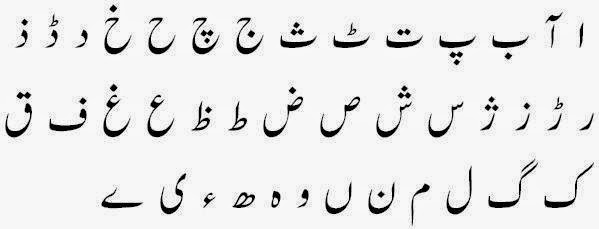 ا آ ب پ ت ٹ ث ج چ ح خ د ڈ ذ
ر ڑ ز ژ س ش ص ض ط ظ ع غ ف ق
ک گ ل م ن ں و ہ ھ ء ی ے